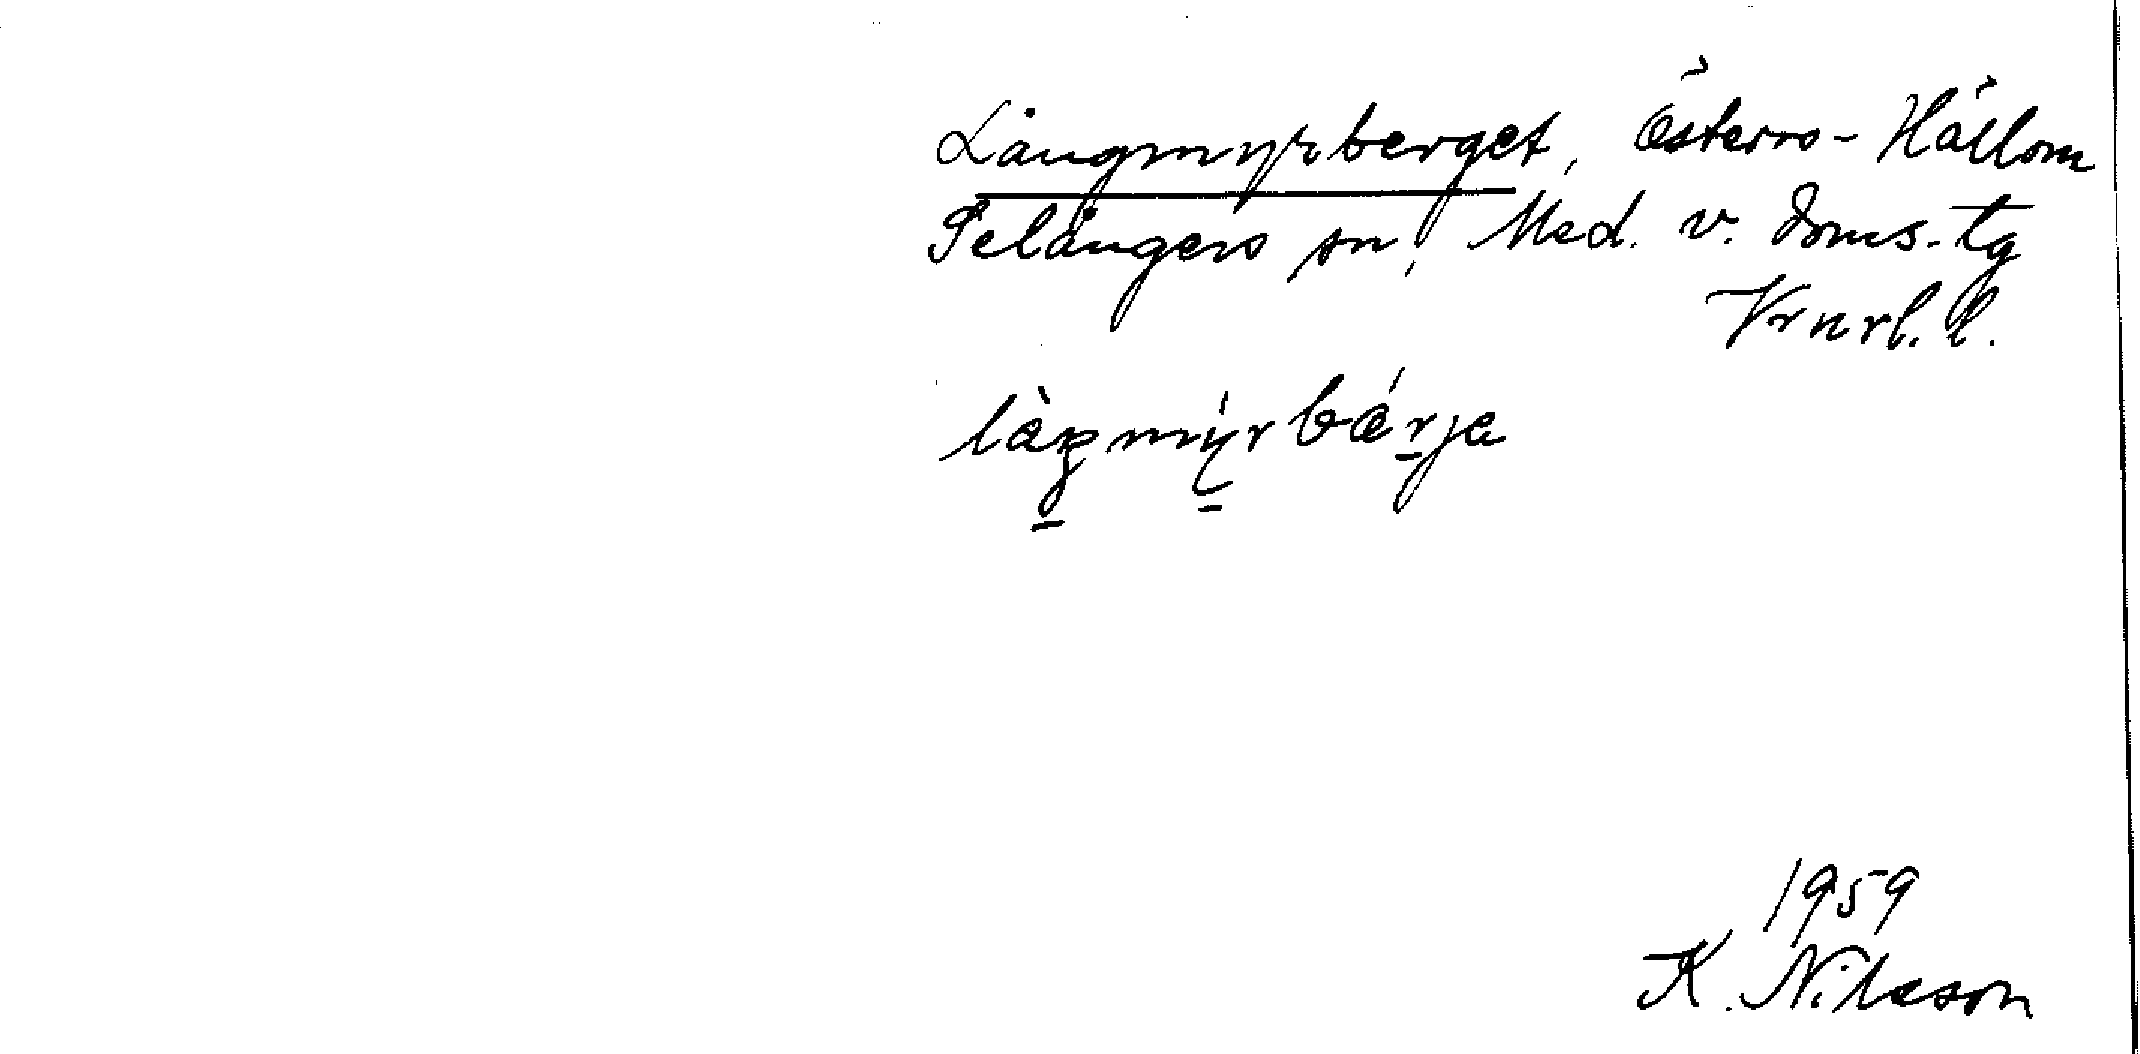 Långmyrberget, Österro-Hällom
Selångers sn, Med. v. doms.-tg
Vrnrl. l.
làŋmýrbǽrjа
1959
K. Nilsson